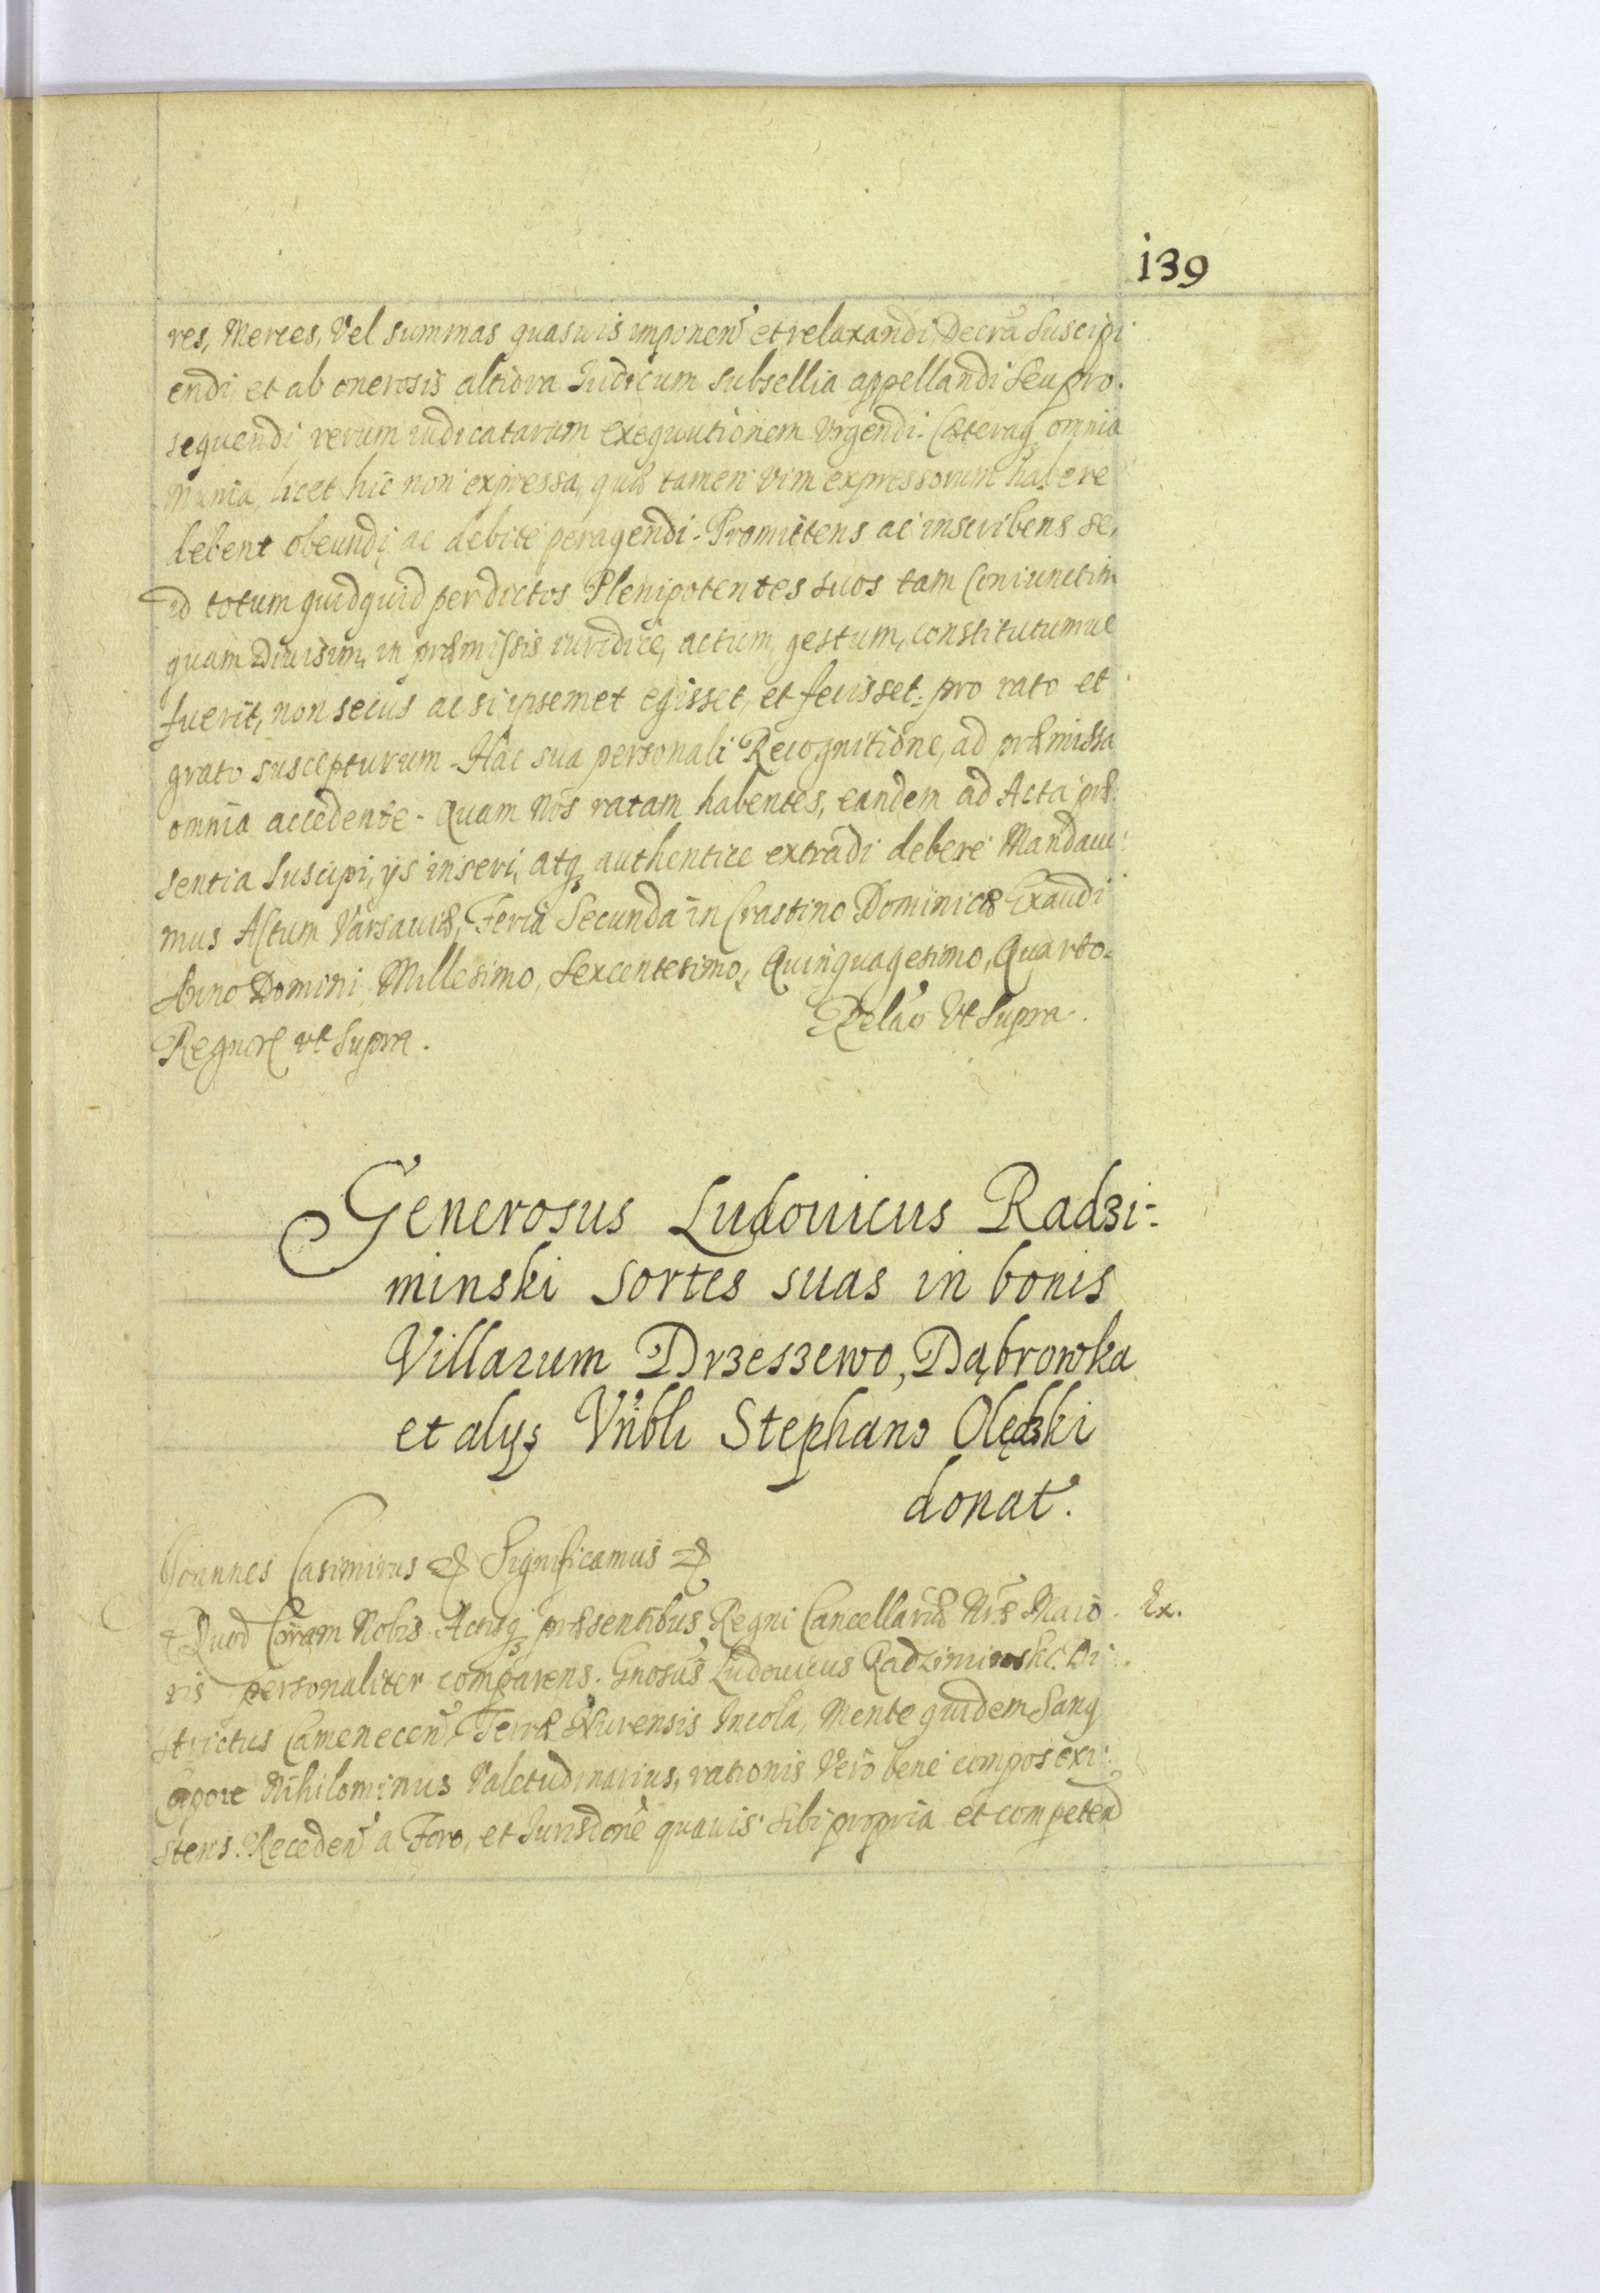 139
res, Merces, Vel summas quasuis imponen̄ et relaxandi, Decrā Suscipi
endi et ab onerosis altiora Iudicum subsellia appellandi Seu pro.
sequendi, rerum iudicatarum exequutionem Vrgendi. Cæteraq omnia
munia, licet hic non expressa, quæ tamen vim expressorum habere
debent obeundi, ac debite peragendi. Promittens ac inscribens se,
id totum quidquid per dictos Plenipotentes suos tam Coniunctim
quam Diuisim, in præmissis iuridice, actum, gestum, constitutumue
fuerit, non secus ac si ipsemet egisset, et fecisset. pro rato et
grato suscepturum. Hac sua personali Recognitione, ad præmissa
omnia accedente. Quam Nos ratam habentes, eandem ad Acta præ
sentia Suscipi, ijs inseri, atq authentice extradi debere Mandaui
mus Actum Varsauiæ, Feria Secunda in Crastino Dominicæ Exaudi
Anno Domini Millesimo, Sexcentesimo, Quinquagesimo, Quarto.
Regnor vt Supra. Relāo Vt Supra.
Generosus Ludouicus Radzi-
minski sortes suas in bonis
Villarum Drzeszewo, Dąbrowka
et alys Vribli Stephano Olędzki
donat.
Ioannes Casimirus Significamus
Quod Coram Nobis Actisq præsentibus Regni Cancellariæ Nræ Maio Ex.
ris personaliter comparens. Gnosus Ludouicus Radziminski Di
strictus Camenecen̄ Terræ Nurensis Incola, Mente quidem Sanq
Corpore Nihilominus Valetudinarius, rationis Vero bene compos exi
stens. Receden̄ a Foro, et Iurisdōne quauis sibi propria et competen̄